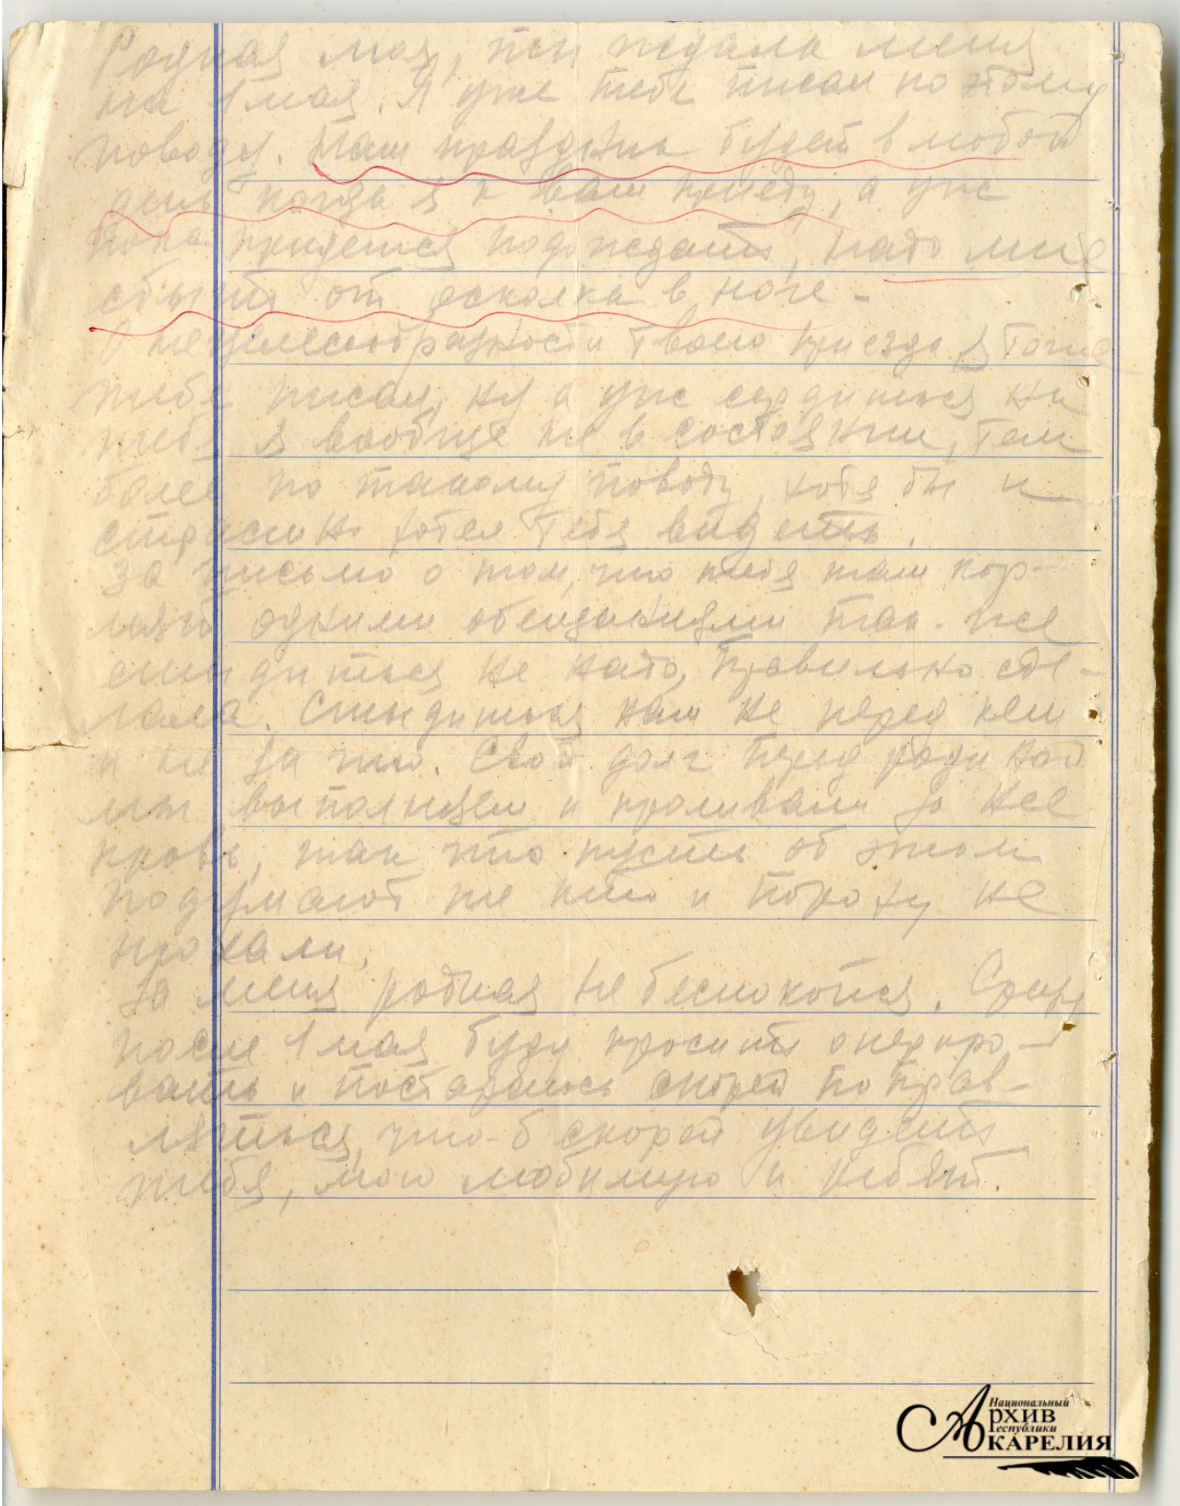 Родная моя, ты ждала меня
на 1 мая. Я уже тебе писал по этому
поводу. Наш праздник будет в любой
день когда я к вам приеду, а уж
пока придется подождать, надо мне
сбыть от осколка в ноге -
О нецелесообразности твоего приезда я тоже
тебе писал, ну а уж сердиться на
тебя я вообще не в состоянии, тем
более по такому поводу, хотя бы и
страшно хотел тебя видеть.
За письмо о том, что тебя там кор-
мят одними обещаниями так-же
стыдиться не надо, правильно сде-
лала. Стыдиться нам не перед кем
и не за что. Свой долг перед родиной
мы выполняем и проливаем за нее
кровь, так что пусть об этом
подумают те кто и пороху не
нюхали,
За меня родная не беспокойся. Сразу
после 1 мая буду просить опериро-
вать и постараюсь скорей поправ-
ляться, что-б скорей увидеть
тебя, мою любимую и ребят.
Национальный
Архив
Республики
Карелия